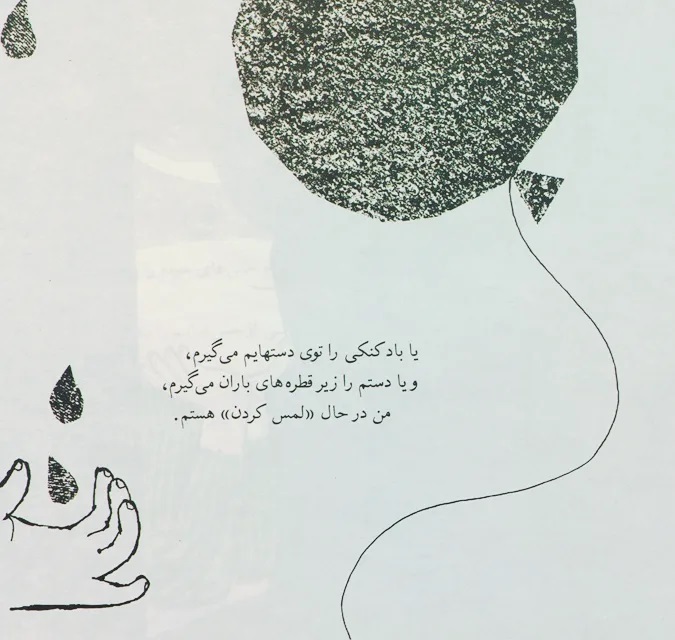 یا بادکنکی را توی دستهایم می‌گیرم،
و یا دستم را زیر قطره‌های باران می‌گیرم،
من در حال «لمس کردن» هستم.